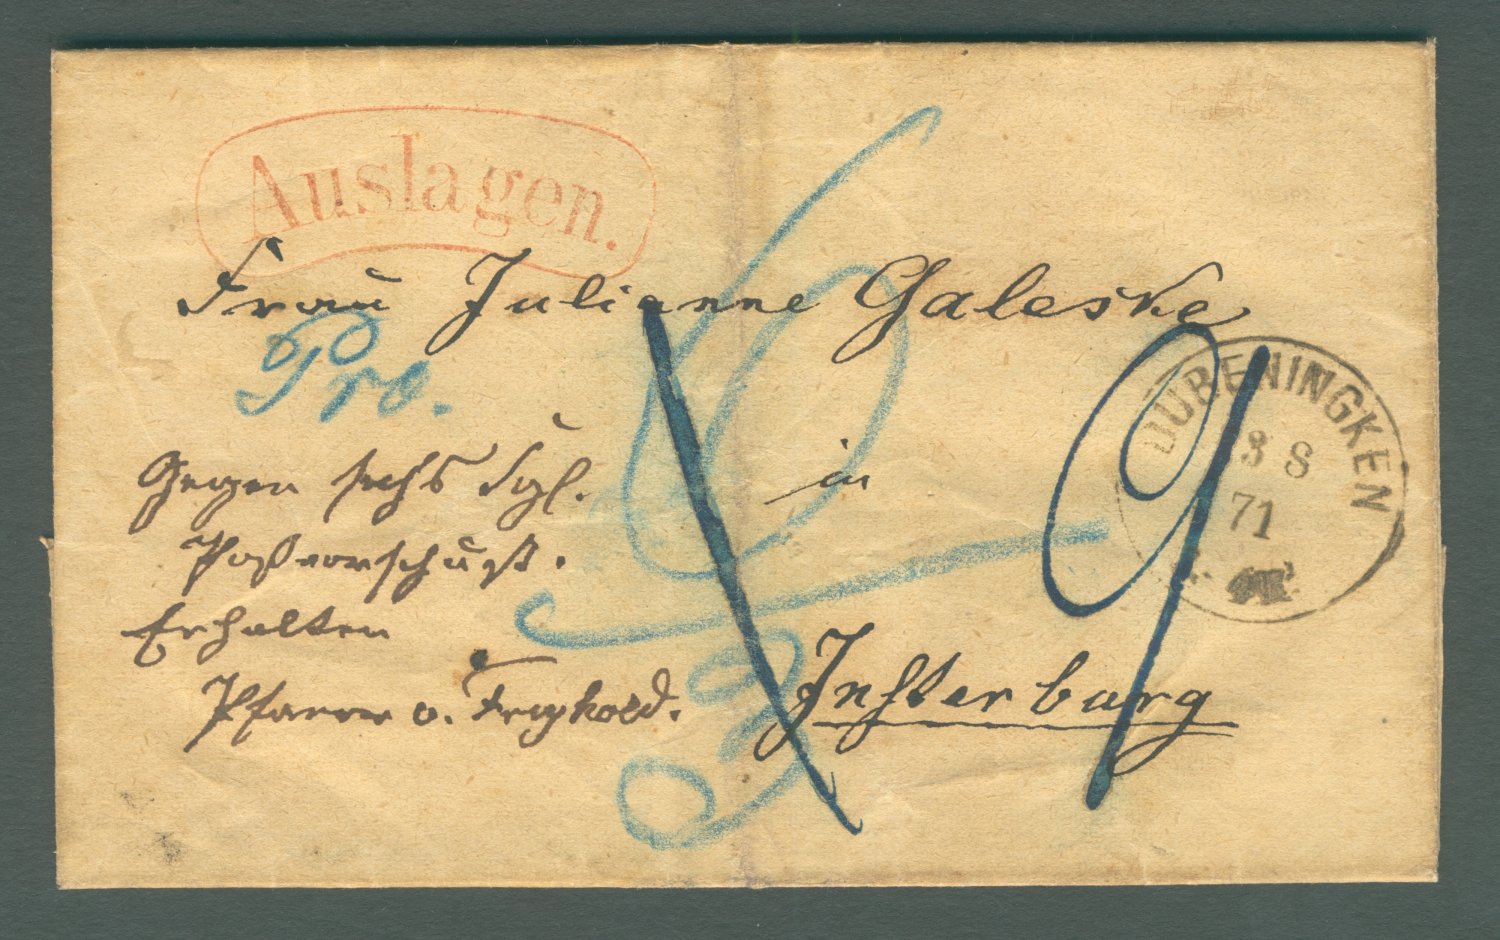 Auslagen.
Frau Julianne Galeske
Pro.
DUBENINGKEN
3 8
71
Gegen sechs Sgl.
in
Postvorschuß.
Erhalten
Pfarrer v. Freyhold.
Insterburg
6
3
9